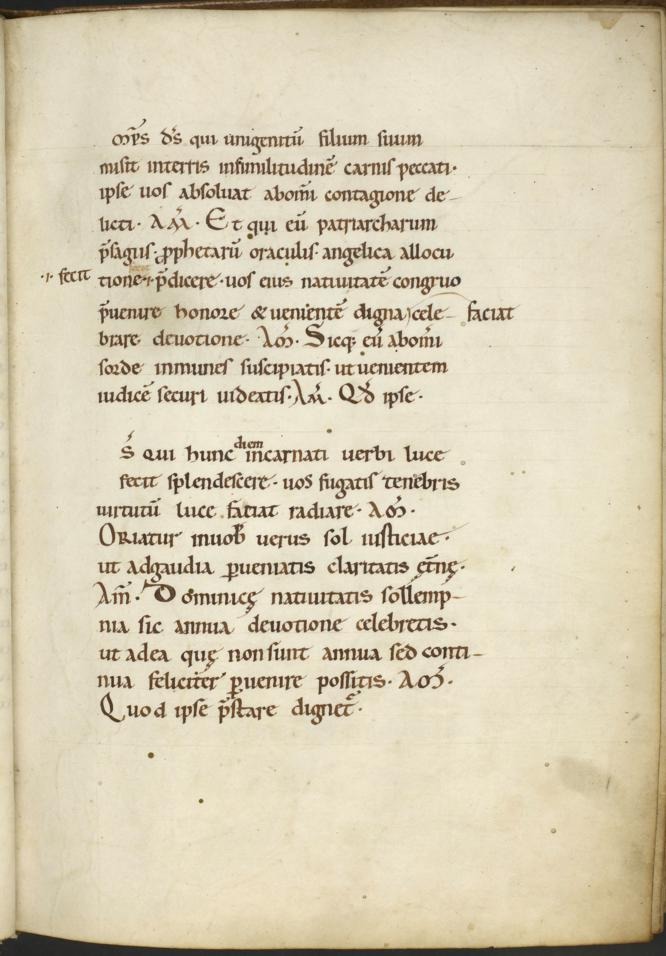 om̅ps ds̅ qui unigenitu̅ filium suum
misit interris insimilitudine̅ carnis peccati·
ipse uos absoluat abom̅i contagione de-
licti· AM̅· Et qui eu̅ patriarcharum
p̅sagiis· ꝓphetaru̅ oraculis· angelica allocu
·i· fecit tione· p̅dicere· uos eius natiuitate̅ congruo
p̅uenire honore & ueniente̅ digna cele- faciat
brare deuotione· AM̅· Sicq; eu̅ abom̅i
sorde inmunes suscipiatis· ut uenientem
iudice̅ securi uideatis· AM̅· Qd̅ ipse·
s̅ qui hunc diem incarnati uerbi luce
fecit splendescere· uos fugatis tenebris
uirtutu̅ luce faciat radiare· AM̅·
Oriatur inuob̅ uerus sol iusticiae·
ut adgaudia ꝑueniatis claritatis ęt̅nę·
Am̅· Dominicę natiuitatis sollemp-
nia sic annua deuotione celebretis·
ut adea quę non sunt annua sed conti-
nua feliciter ꝑuenire possitis· AM̅·
Quod ipse p̅stare dignet̅·